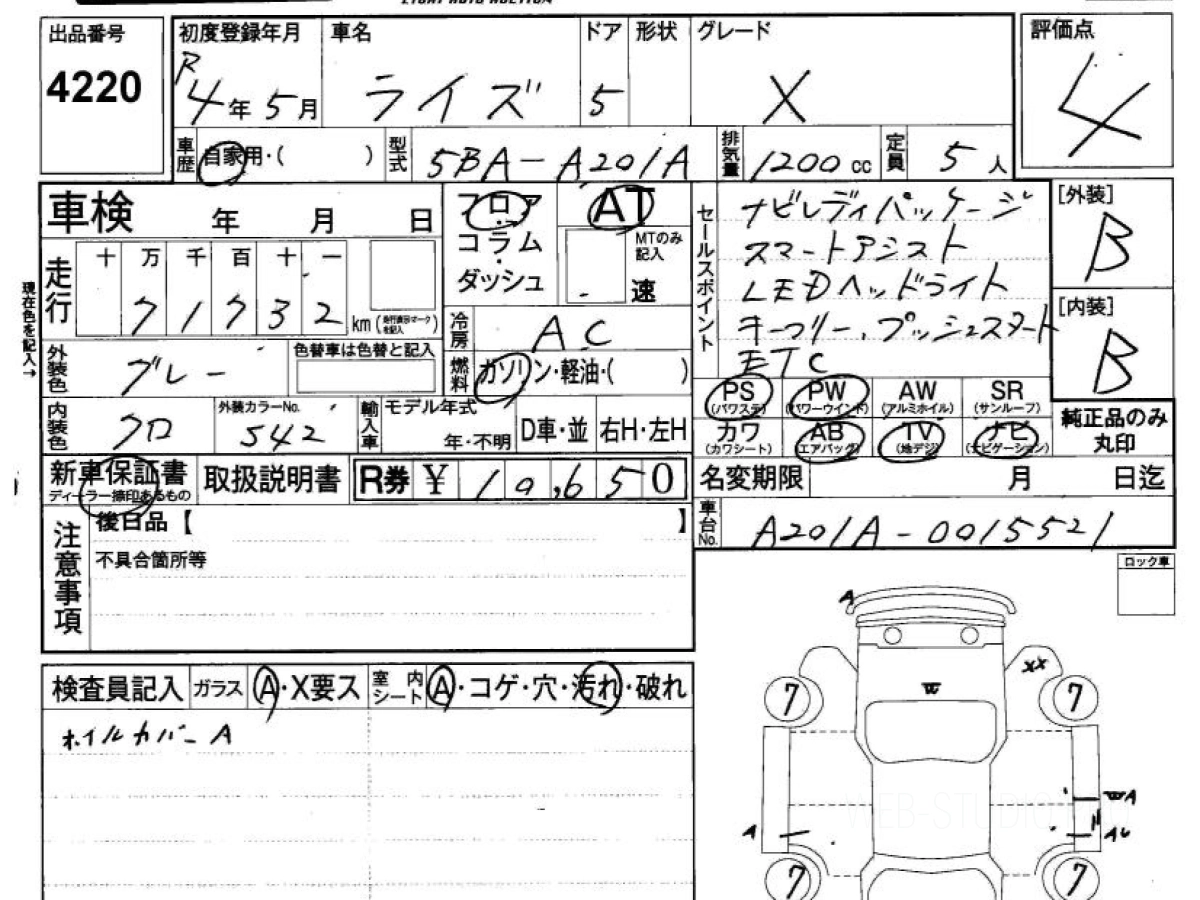 出品番号 初度登録年月 車名 ドア 形状 グレード 評価点
4220 R4年5月 ライズ 5 X 4
車歴 自家用・( ) 型式 5BA-A201A 排気量 1200cc 定員 5人
車検 年 月 日
フロア・コラム・ダッシュ
AT
MTのみ記入
速
セールスポイント
ナビレディパッケージ
スマートアシスト
LEDヘッドライト
キーフリー、プッシュスタート
ETC
[外装]
B
[内装]
B
現在色を記入→
走行 十 万 千 百 十 一
7 1 7 3 2 km (走行表示マークを記入)
冷房 AC
外装色 グレー 色替車は色替と記入
燃料 ガソリン・軽油・( )
PS (パワステ) PW (パワーウインド) AW (アルミホイル) SR (サンルーフ)
カワ (カワシート) AB (エアバッグ) TV (地デジ) ナビ (ナビゲーション)
純正品のみ丸印
内装色 クロ 外装カラーNo. 542 輸入車 モデル年式 年・不明 D車・並 右H・左H
新車保証書 ディーラー捺印あるもの 取扱説明書 R券 ¥ 10,650
名変期限 月 日迄
車台No. A201A-0015521
注意事項
後日品【 】
不具合箇所等
ロック車
検査員記入 ガラス A・X要ス 室内シート A・コゲ・穴・汚れ・破れ
ホイルカバー A
A
XX
7 7
W
WA
A
7 7
WEB-STUDIO